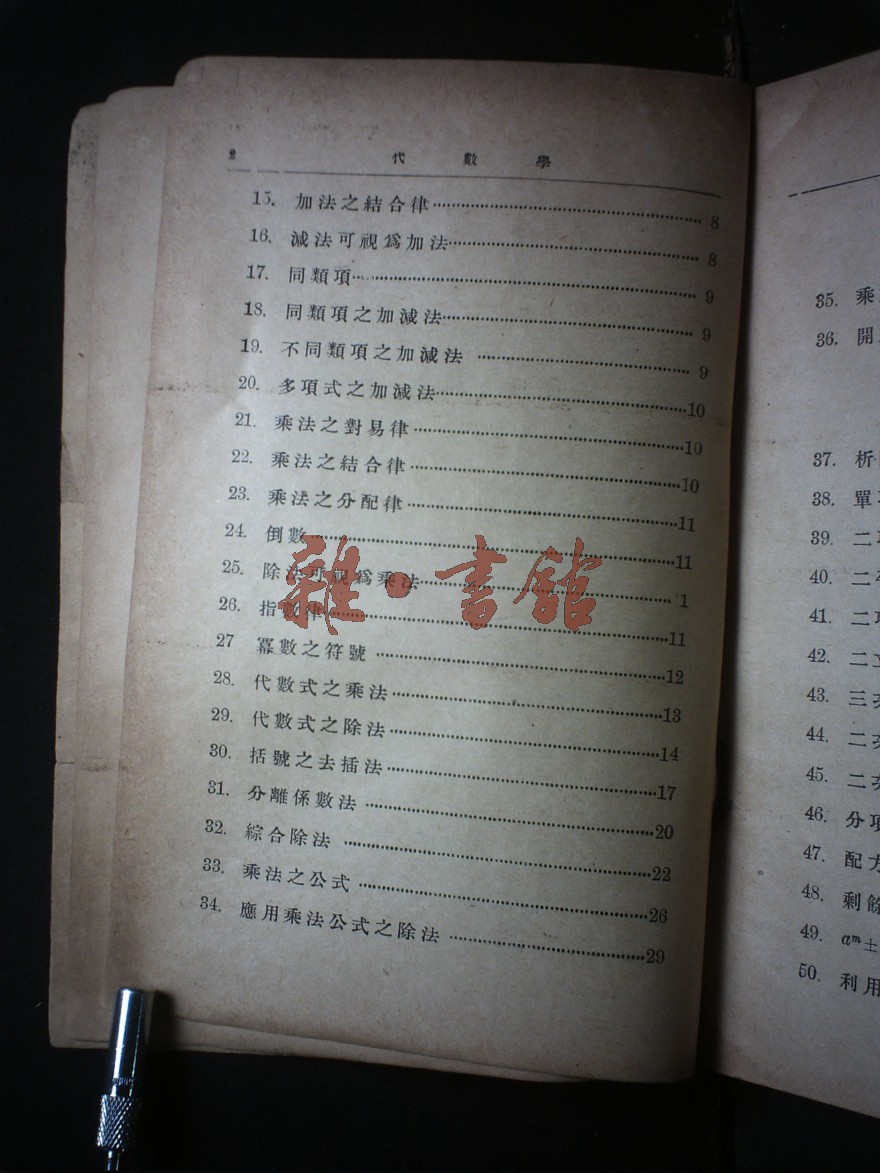 2 代數學
15. 加法之結合律 8
16. 減法可視爲加法 8
17. 同類項 9
18. 同類項之加減法 9
19. 不同類項之加減法 9
20. 多項式之加減法 10
21. 乘法之對易律 10
22. 乘法之結合律 10
23. 乘法之分配律 11
24. 倒數 11
25. 除法可視爲乘法 1
26. 指數律 11
27 冪數之符號 12
28. 代數式之乘法 13
29. 代數式之除法 14
30. 括號之去插法 17
31. 分離係數法 20
32. 綜合除法 22
33. 乘法之公式 26
34. 應用乘法公式之除法 29
雜·書館
35. 乘
36. 開
37. 析
38. 單
39. 二
40. 二
41. 二項
42. 二立
43. 三次
44. 二次
45. 二次
46. 分項
47. 配方
48. 剩餘
49. aᵐ±
50. 利用